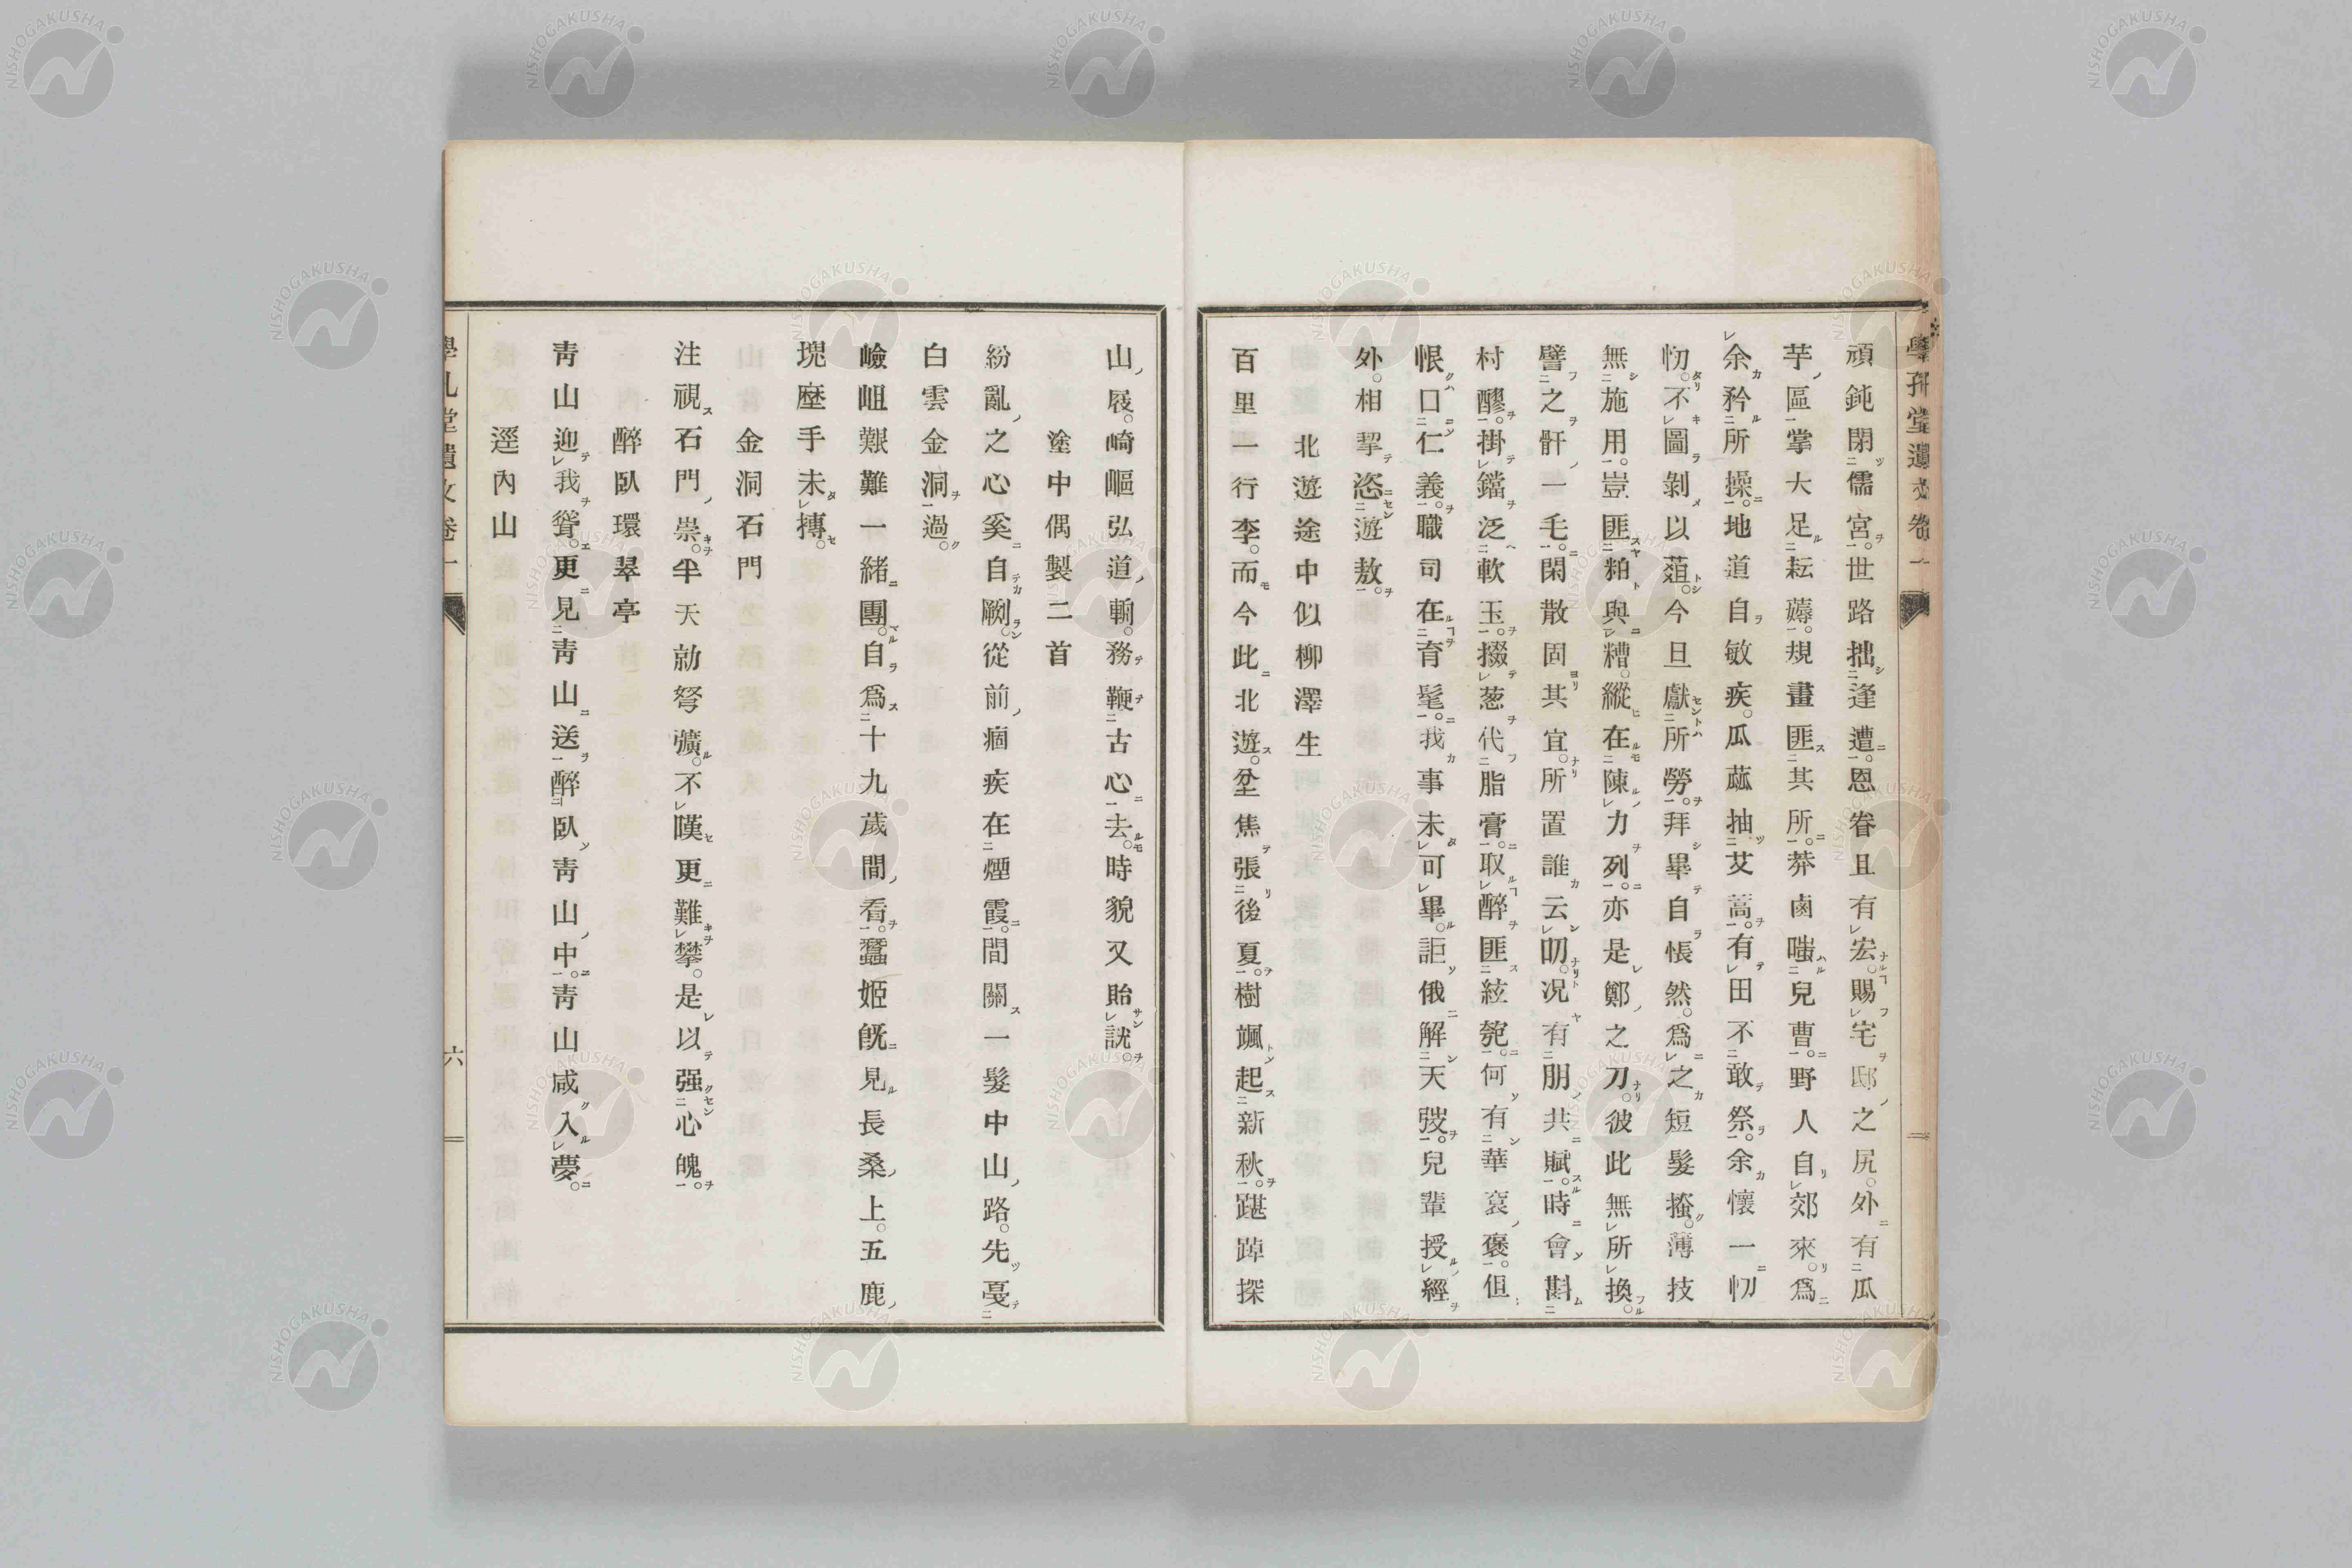 頑鈍閉儒宮。世路拙逢遭。恩眷且有宏。賜宅邸之尻。外有瓜
芋區掌大足耘薅。規畫匪其所。莽鹵嗤兒曹。野人自郊來。爲
余矜所操。地道自敏疾。瓜蓏抽艾蒿。有田不敢祭。余懷一忉
忉。不圖剝以葅。今旦獻所勞。拜畢自悵然。爲之短髮搔。薄技
無施用。豈匪粕與糟。縱在陳力列。亦是鄭之刀。彼此無所換。
譬之骭一毛。閑散固其宜。所置誰云叨。況有朋共賦。時會斟
村醪。掛鐺泛軟玉。掇葱代脂膏。取醉匪絃匏。何有華袞褒。但
恨口仁義。職司在育髦。我事未可畢。詎俄解天弢。兒輩授經
外。相挈恣遊敖。
北遊途中似柳澤生
百里一行李。而今此北遊。坌焦張後夏。樹颯起新秋。踸踔探
山屐。崎嶇弘道輈。務鞭古心去。時貌又貽訧。
塗中偶製二首
紛亂之心奚自劂。從前痼疾在煙霞。間關一髮中山路。先戞
白雲金洞過。
嶮岨艱難一緖團。自爲十九歲間看。蠶姬旣見長桑上。五鹿
塊歷手未摶。
金洞石門
注視石門祟。半天勍弩彍。不嘆更難攀。是以强心魄。
醉臥環翠亭
靑山迎我聳。更見靑山送。醉臥靑山中。靑山咸入夢。
逕內山
學孔堂遺文卷一
六